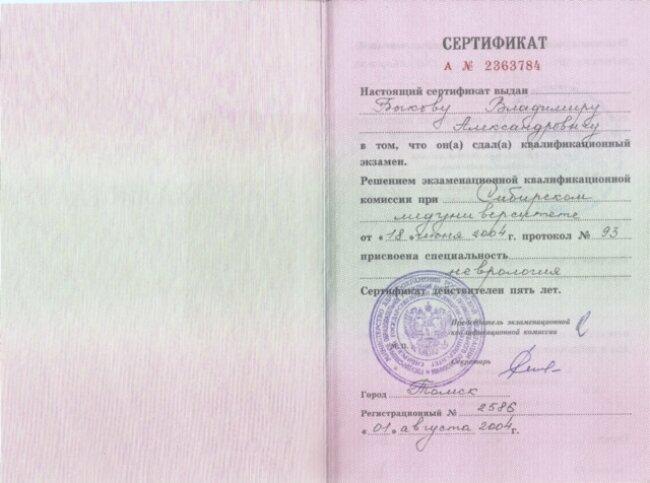 СЕРТИФИКАТ
А № 2363784
Настоящий сертификат выдан
Быкову Владимиру
Александровичу
в том, что он(а) сдал(а) квалификационный
экзамен.
Решением экзаменационной квалификационной
комиссии при Сибирском
медуниверситете
от « 18 » июня 2004 г. протокол № 93
присвоена специальность
неврология
Сертификат действителен пять лет.
Председатель экзаменационной
квалификационной комиссии
М.П.
Секретарь
Город Томск
Регистрационный № 2586
« 01 » августа 2004 г.